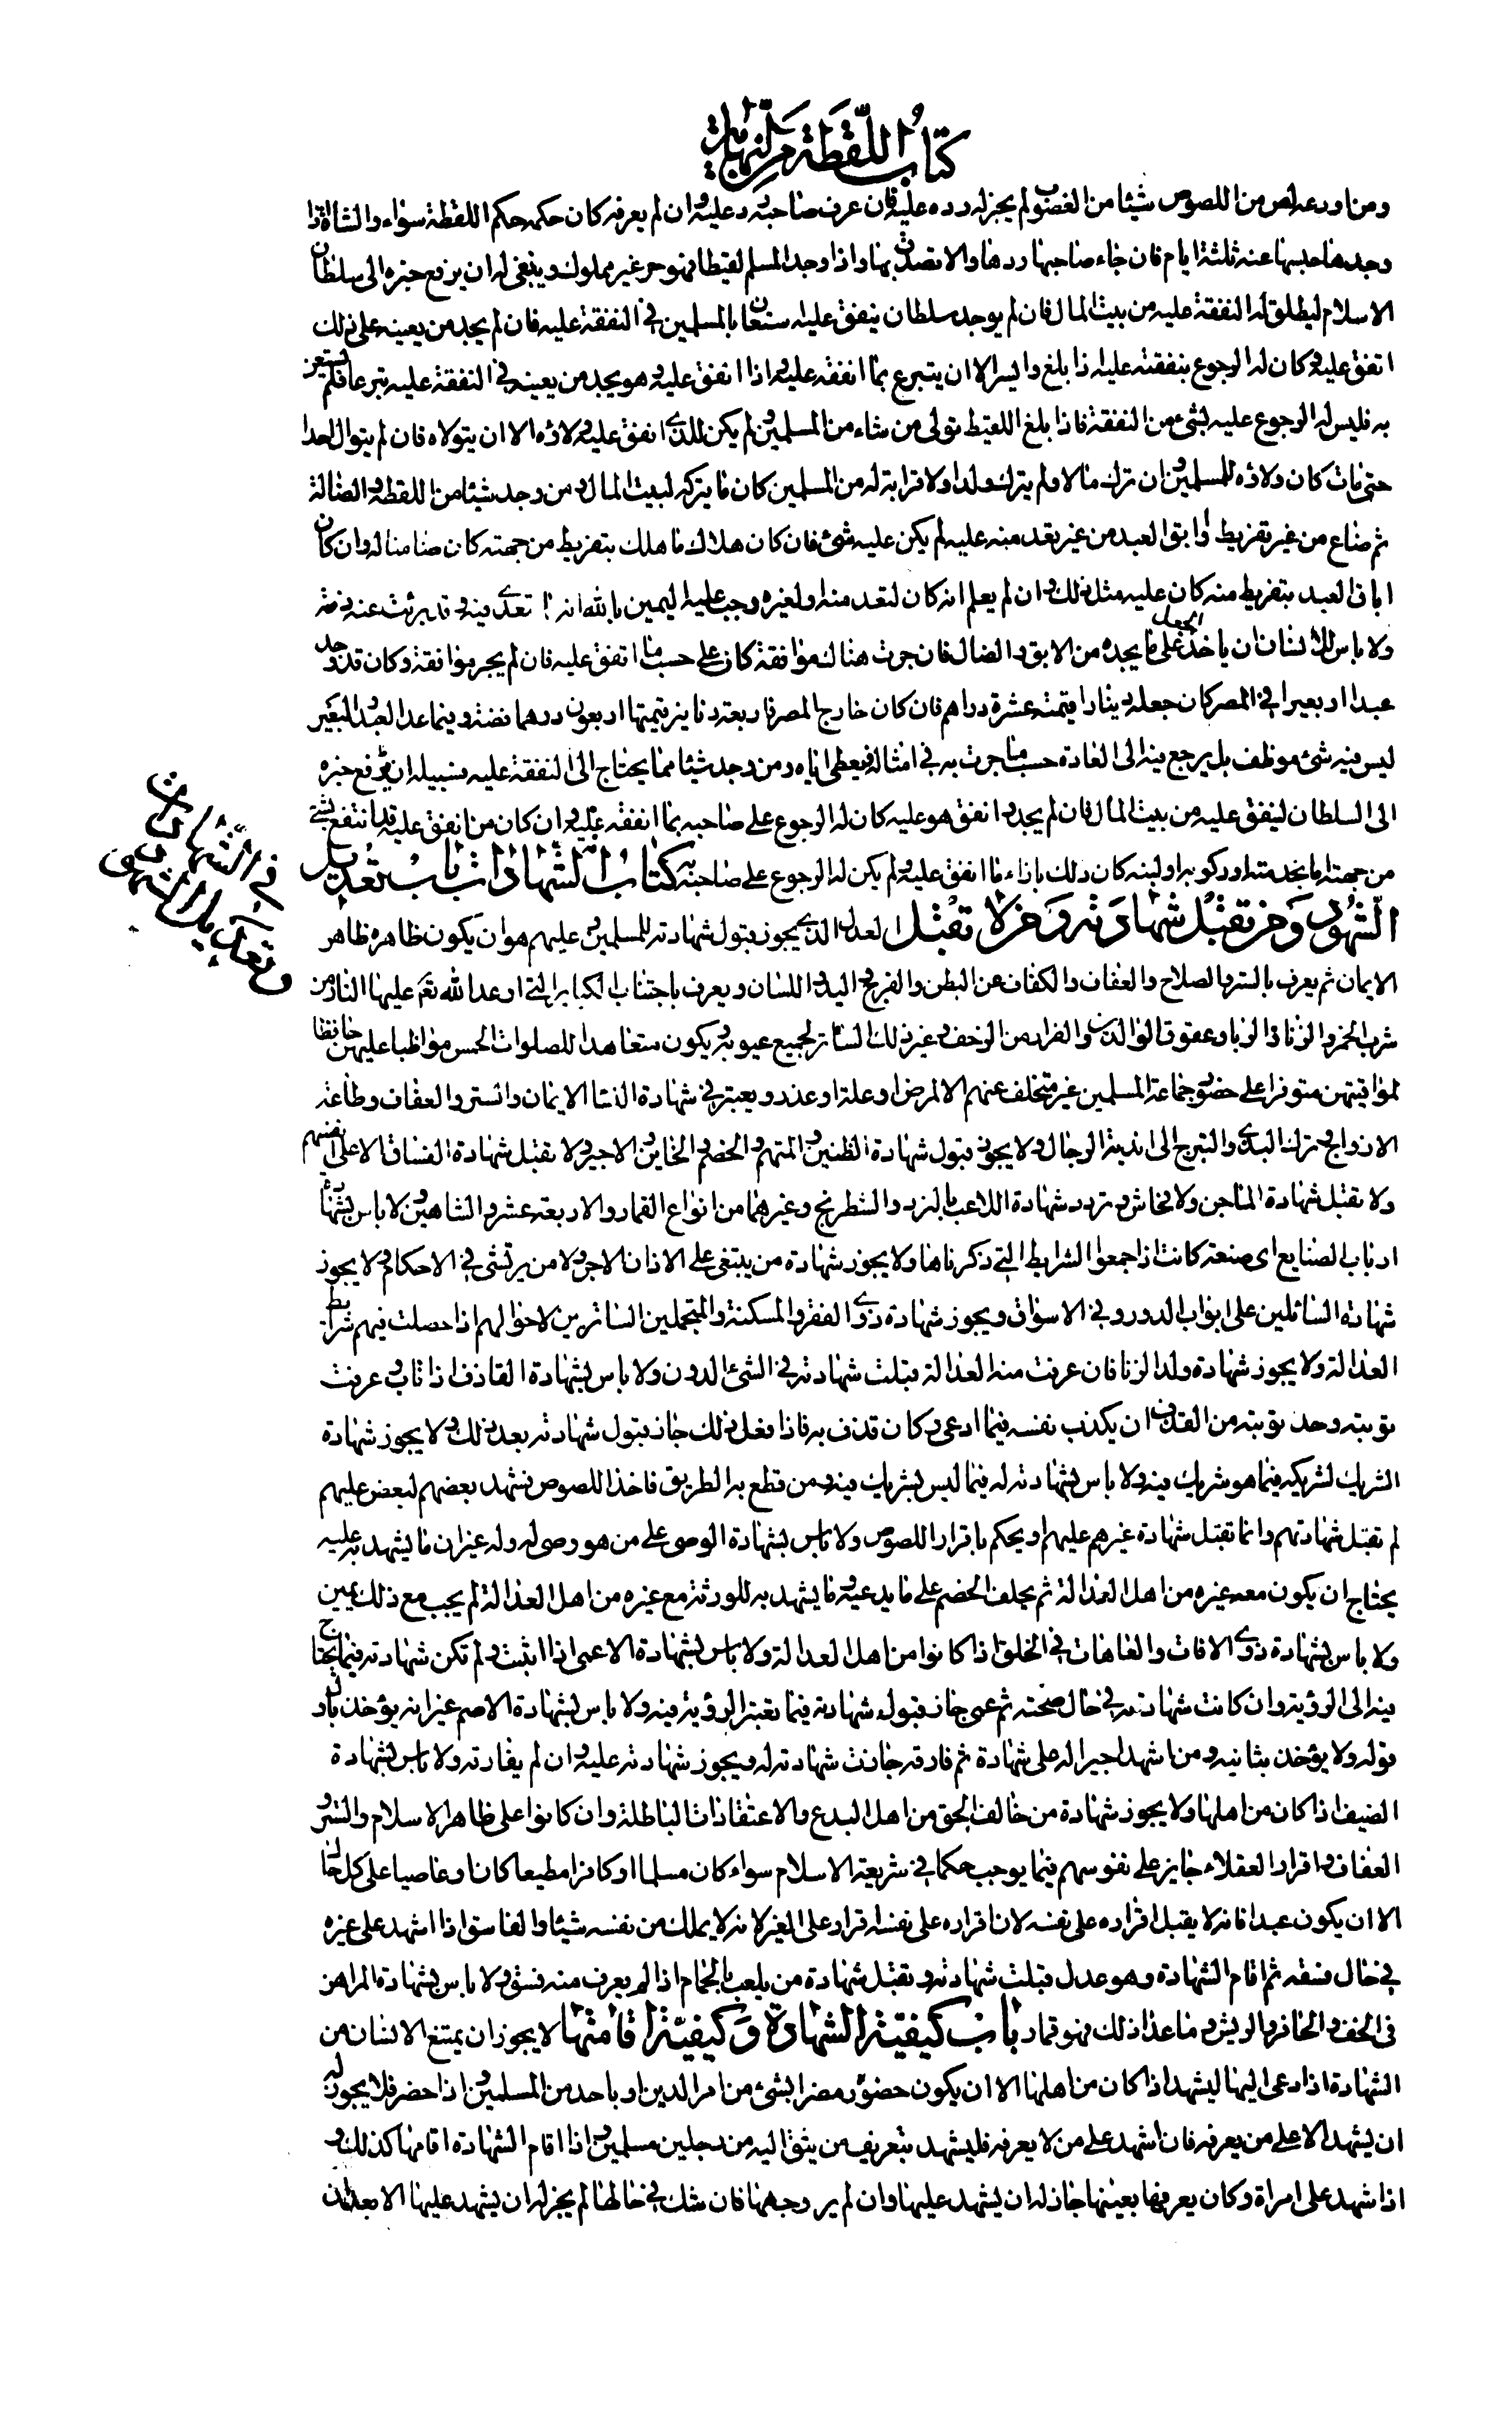 كتاب اللقطة من النهاية
ومن اودعه لص من اللصوص شيئا من الغصوب لم يجز له رده عليه فان عرف صاحبه رد عليه وان لم يعرف كان حكمه حكم اللقطة سواء والشاة اذا
وجدها حبسها عنده ثلثة ايام فان جاء صاحبها ردها والا تصدق بها واذا وجد المسلم لقيطا فهو حر غير مملوك وينبغى له ان يرفع خبره الى سلطان
الاسلام ليطلق له النفقة عليه من بيت المال فان لم يوجد سلطان ينفق عليه استعان بالمسلمين في النفقة عليه فان لم يجد من يعينه على ذلك
انفق عليه وكان له الرجوع بنفقته عليه اذا بلغ وايسر الا ان يتبرع بما انفقه عليه واذا انفق عليه وهو يجد من يعينه في النفقة عليه تبرعا فلم يستعن
به فليس له الرجوع عليه بشئ من النفقة فاذا بلغ اللقيط تولى من شاء من المسلمين ولم يكن للذي انفق عليه ولاؤه الا ان يتولاه فان لم يتوال احدا
حتى مات كان ولاؤه للمسلمين وان ترك مالا ولم يترك ولدا ولا قرابة له من المسلمين كان ما يتركه لبيت المال ومن وجد شيئا من اللقطة والضالة
ثم ضاع من غير تفريط او ابق العبد من غير تعد منه عليه لم يكن عليه شئ فان كان هلاك ما هلك بتفريط من جهته كان ضامنا له وان كان
اباق العبد بتفريط منه كان عليه مثل ذلك وان لم يعلم انه كان لتعد منه او لغيره وجب عليه اليمين بالله انه ما تعدى فيه وقد برئت عنه ذمته
ولا باس للانسان ان ياخذ الجعل على ما يجده من الابق والضال فان جرت هناك موافقة كان على حسب ما اتفق عليه فان لم يجر موافقة وكان قد وجد
عبدا او بعيرا في المصر كان جعله دينارا قيمته عشرة دراهم فان كان خارج المصر فاربعة دنانير قيمتها اربعون درهما فضة وفيما عدا العبد والبعير
ليس فيه شئ موظف بل يرجع فيه الى العادة حسب ما جرت به في امثاله فيعطى اياه ومن وجد شيئا مما يحتاج الى النفقة عليه فسبيله ان يرفع خبره
الى السلطان لينفق عليه من بيت المال فان لم يجد وانفق هو عليه كان له الرجوع على صاحبه بما انفقه عليه وان كان من انفق عليه قد انتفع بشئ
من جهته اما بخدمته او ركوبه او لبنه كان ذلك بازاء ما انفق عليه ولم يكن له الرجوع على صاحبه كتاب الشهادات باب تعديل
الشهود ومن تقبل شهادته ومن لا تقبل العدل الذي يجوز قبول شهادته للمسلمين وعليهم هو ان يكون ظاهره ظاهر
الايمان ثم يعرف بالستر والصلاح والعفاف والكفاف عن البطن والفرج واليد واللسان ويعرف باجتناب الكباير التي اوعد الله تع عليها النار من
شرب الخمر والزنا والربا وعقوق الوالدين والفرار من الزحف وغير ذلك الساتر لجميع عيوبه ويكون متعاهدا للصلوات الخمس مواظبا عليهن حافظا
لمواقيتهن متوفرا على حضور جماعة المسلمين غير متخلف عنهم الا لمرض او علة او عذر ويعتبر في شهادة النساء الايمان والستر والعفاف وطاعة
الازواج وترك البذاء والتبرج الى اندية الرجال ولا يجوز قبول شهادة الظنين والمتهم والخصم والخاين والاجير ولا تقبل شهادة الفساق الا على انفسهم
ولا تقبل شهادة الماجن ولا فحاش وترد شهادة اللاعب بالنرد والشطرنج وغيرهما من انواع القمار والاربعة عشر والشاهين ولا باس بشهادة
ارباب الصنايع اى صنعة كانت اذا جمعوا الشرايط التي ذكرناها ولا يجوز شهادة من يبتغى على الاذان الاجر ولا من يرتشى في الاحكام ولا يجوز
شهادة السائلين على ابواب الدور وفي الاسواق ويجوز شهادة ذوي الفقر والمسكنة والمتجملين الساترين لاحوالهم اذا حصلت فيهم شرايط
العدالة ولا يجوز شهادة ولد الزنا فان عرفت منه العدالة قبلت شهادته في الشئ الدون ولا باس بشهادة القاذف اذا تاب وعرفت
توبته وحد توبته من القذف ان يكذب نفسه فيما ادعى وكان قذف به فاذا فعل ذلك جاز قبول شهادته بعد ذلك ولا يجوز شهادة
الشريك لشريكه فيما هو شريك فيه ولا باس بشهادته له فيما ليس بشريك فيه ومن قطع به الطريق فاخذ اللصوص فشهد بعضهم لبعض عليهم
لم تقبل شهادتهم وانما تقبل شهادة غيرهم عليهم او يحكم باقرار اللصوص ولا باس بشهادة الوصى على من هو وصى له وله غير ان ما يشهد به عليه
يحتاج ان يكون معه غيره من اهل العدالة ثم يحلف الخصم على ما يدعيه وما يشهد به للورثة مع غيره من اهل العدالة لم يجب مع ذلك يمين
ولا باس بشهادة ذوي الافات والعاهات في الخلق اذا كانوا من اهل العدالة ولا باس بشهادة الاعمى اذا اثبت ولم تكن شهادته فيما يحتاج
فيه الى الرؤية وان كانت شهادته في حال صحته ثم عمى جاز قبول شهادته فيما تعتبر الرؤية فيه ولا باس بشهادة الاصم غير انه يؤخذ باول
قوله ولا يؤخذ بثانيه ومن اشهد اجيرا له على شهادة ثم فارقه جازت شهادته له ويجوز شهادته عليه وان لم يفارقه ولا باس بشهادة
الضيف اذا كان من اهلها ولا يجوز شهادة من خالف الحق من اهل البدع والاعتقادات الباطلة وان كانوا على ظاهر الاسلام والستر و
العفاف واقرار العقلاء جايز على نفوسهم فيما يوجب حكما في شريعة الاسلام سواء كان مسلما او كافرا مطيعا كان او عاصيا على كل حال
الا ان يكون عبدا فانه لا يقبل اقراره على نفسه لان اقراره على نفسه اقرار على الغير لانه لا يملك من نفسه شيئا والفاسق اذا اشهد على غيره
في حال فسقه ثم اقام الشهادة وهو عدل قبلت شهادته وتقبل شهادة من يلعب بالحمام اذا لم يعرف منه فسق ولا باس بشهادة المراهن
فى الخف والحافر والريش وما عدا ذلك فهو قمار باب كيفية الشهادة وكيفية اقامتها لا يجوز ان يمتنع الانسان من
الشهادة اذا دعى اليها ليشهد اذا كان من اهلها الا ان يكون حضوره مضرا بشئ من امر الدين او باحد من المسلمين واذا حضر فلا يجوز له
ان يشهد الا على من يعرفه فان اشهد على من لا يعرفه فليشهد بتعريف من يثق اليه من رجلين مسلمين واذا اقام الشهادة اقامها كذلك و
اذا شهد على امراة وكان يعرفها بعينها جاز له ان يشهد عليها وان لم ير وجهها فان شك في حالها لم يجز له ان يشهد عليها الا بعد ان
في الشهادات
وتعديل الشهود